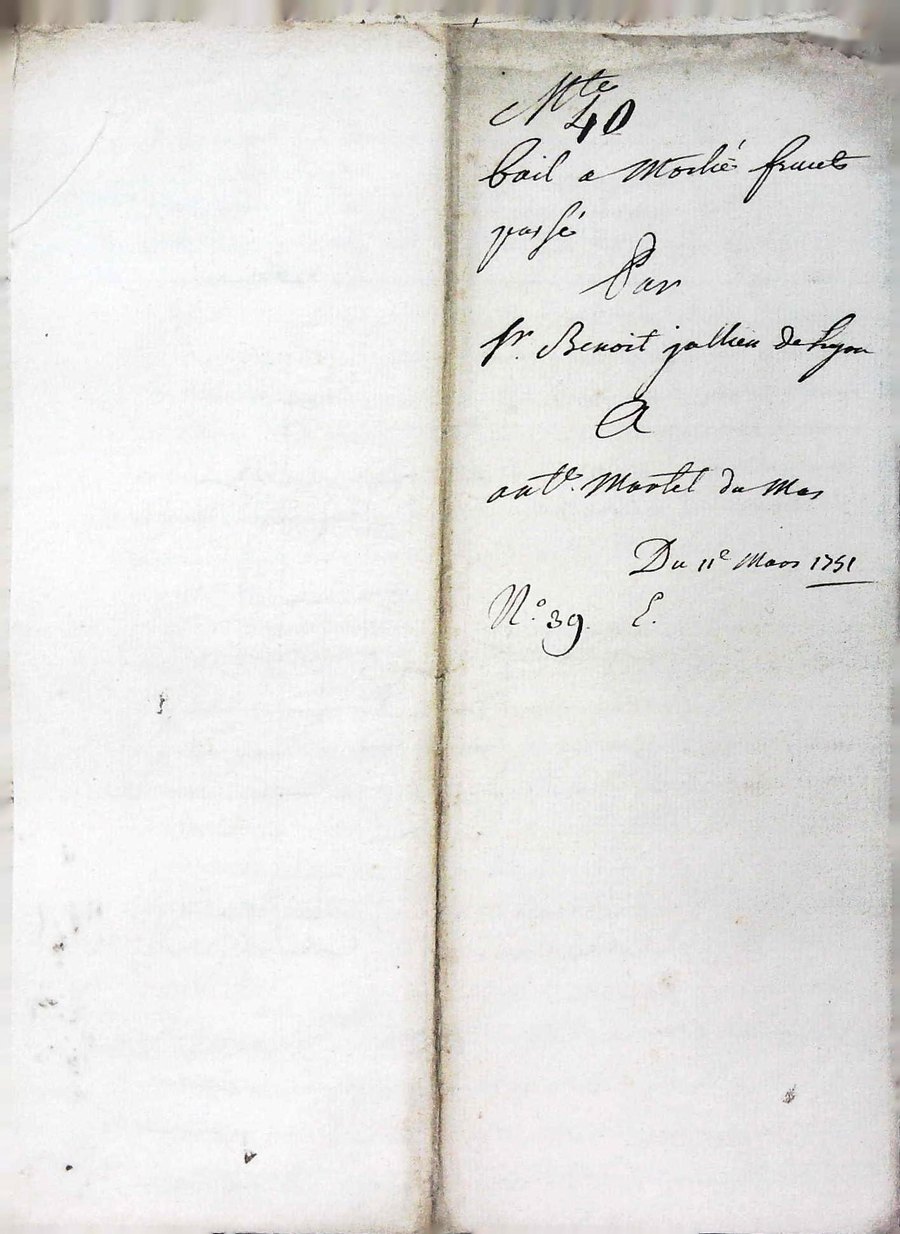 Mte
40
bail a Moitié fruits
passé
Par
Sr. Benoit jullien de Lyon
A
ante. Martel du Mas
Du 11e Mars 1751
N.o 39. E.